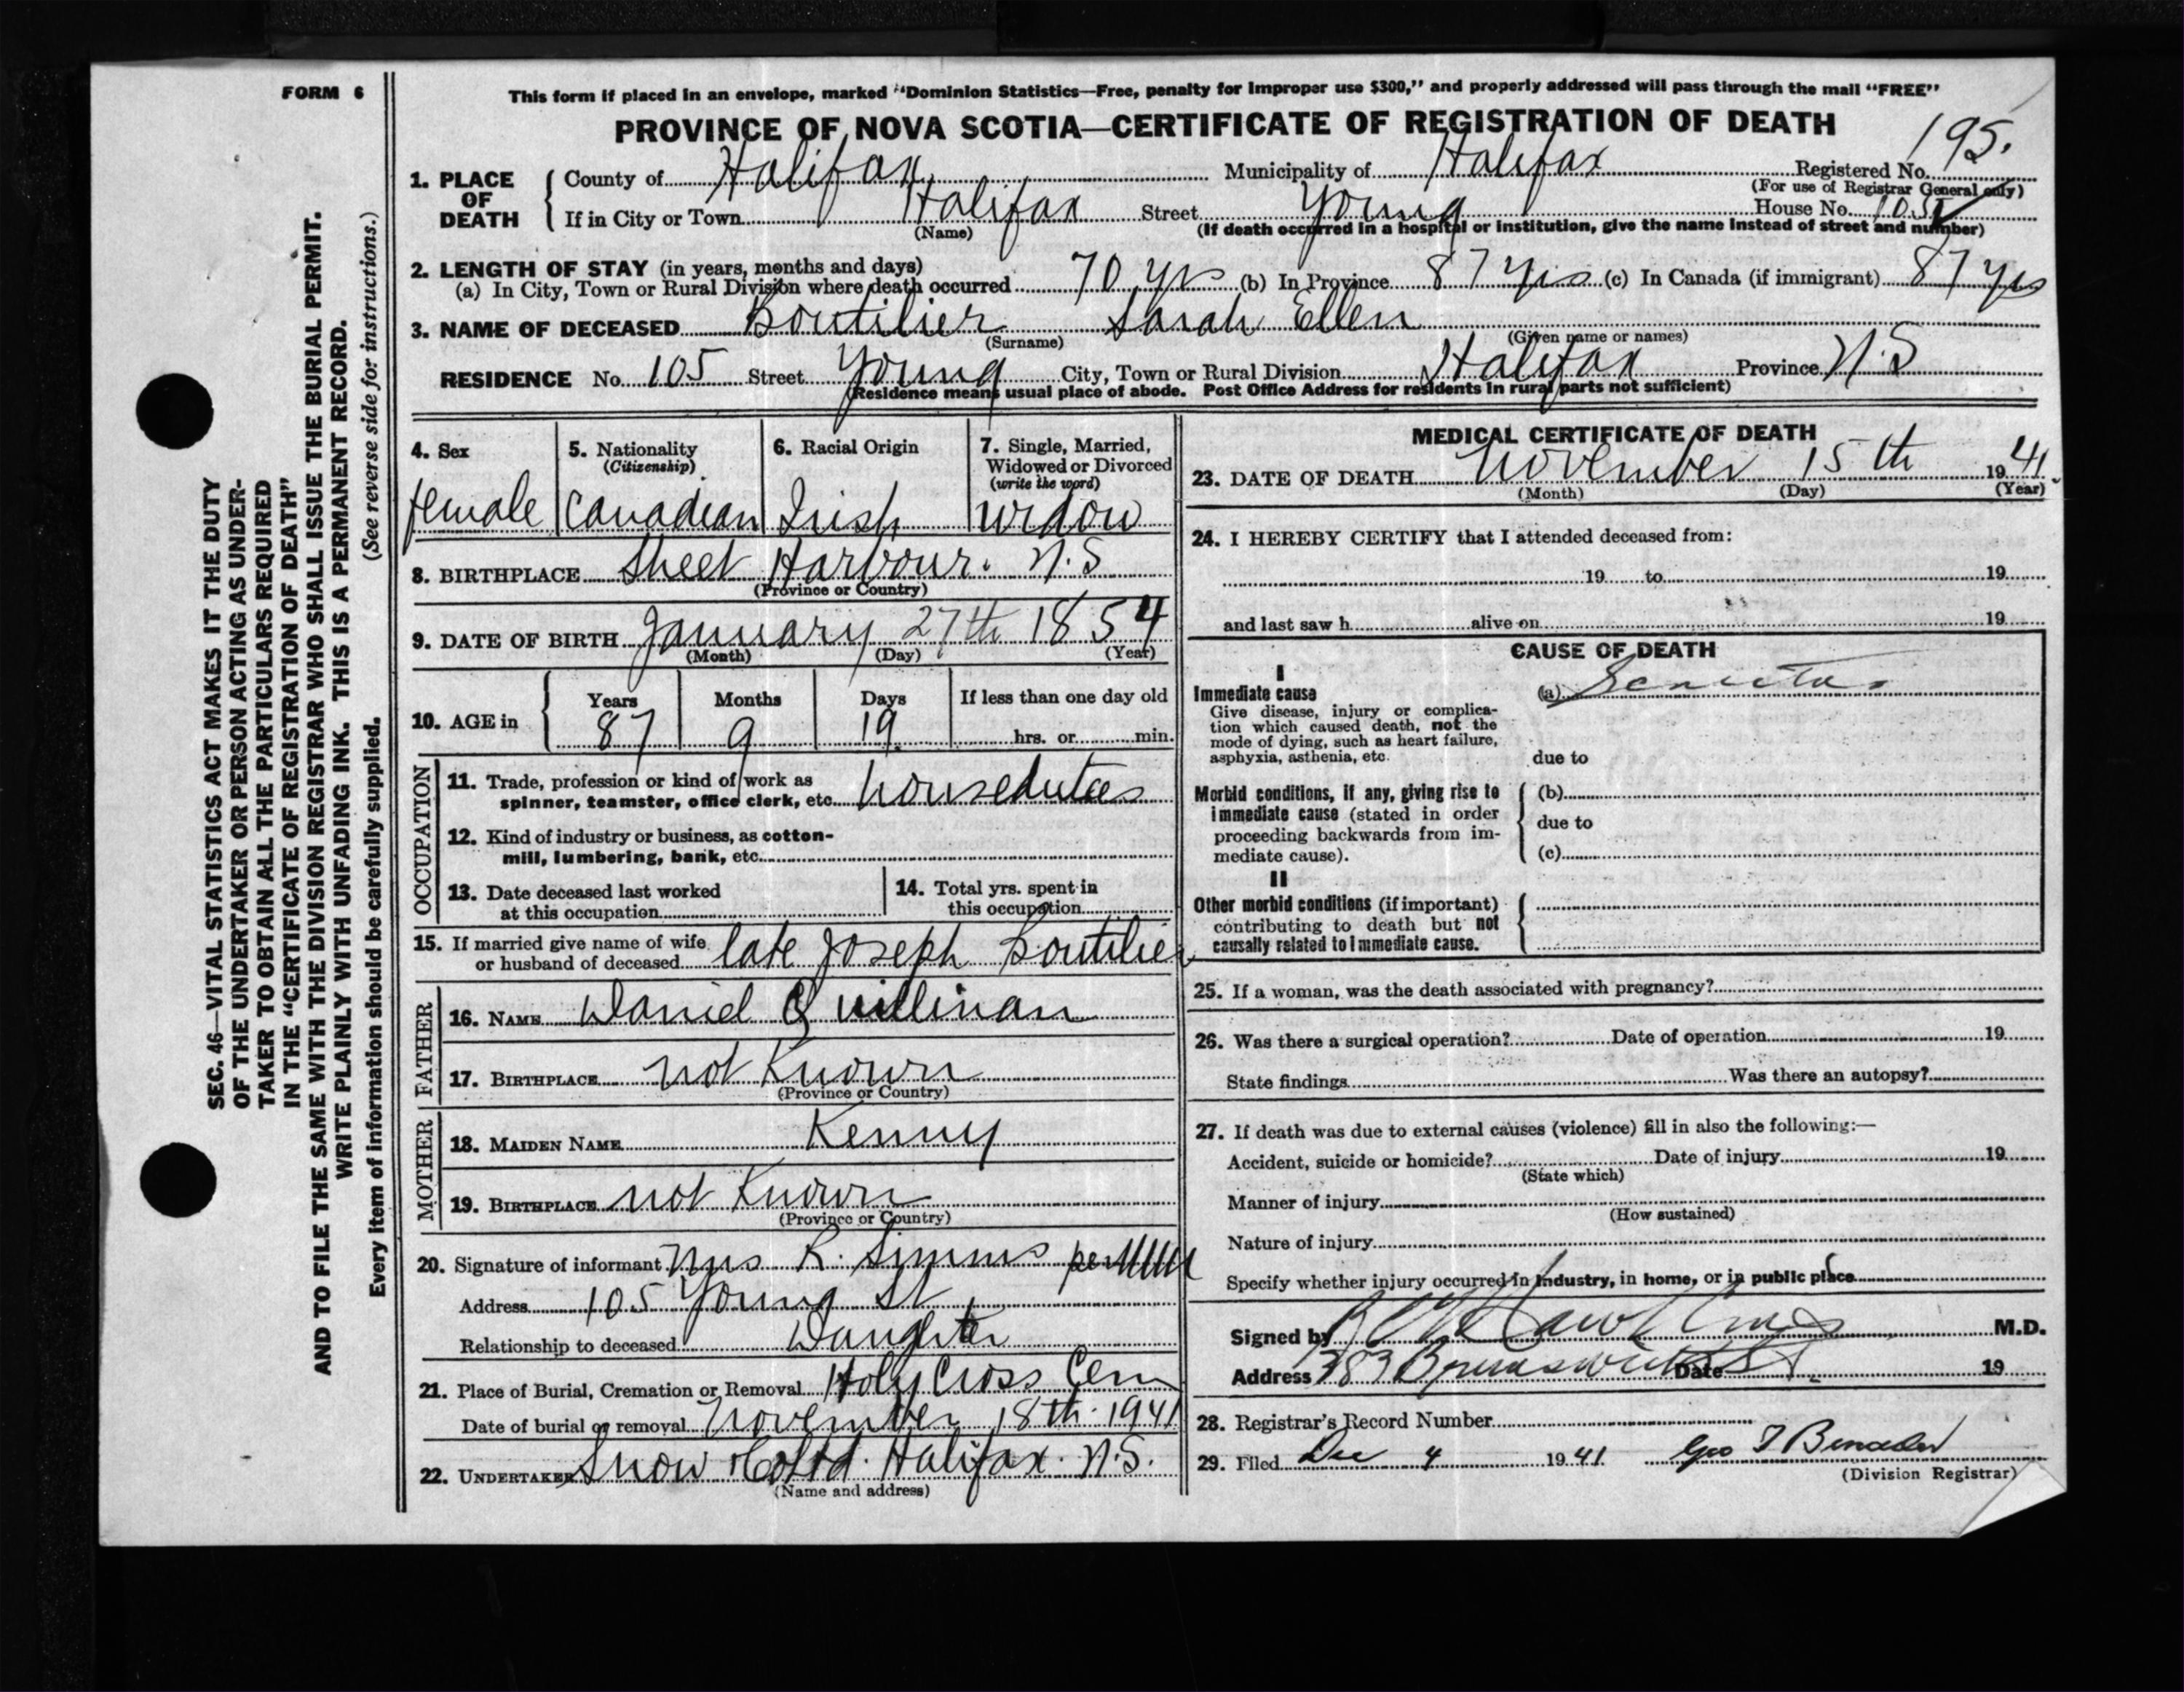 FORM 6
This form if placed in an envelope, marked "Dominion Statistics—Free, penalty for improper use $300," and properly addressed will pass through the mail "FREE"
PROVINCE OF NOVA SCOTIA—CERTIFICATE OF REGISTRATION OF DEATH
195.
1. PLACE OF DEATH
County of Halifax Municipality of Halifax Registered No.
(For use of Registrar General only)
If in City or Town Halifax Street Young House No. 105
(Name) (If death occurred in a hospital or institution, give the name instead of street and number)
2. LENGTH OF STAY (in years, months and days)
(a) In City, Town or Rural Division where death occurred 70 yrs (b) In Province 87 yrs (c) In Canada (if immigrant) 87 yrs
3. NAME OF DECEASED Boutilier Sarah Ellen
(Surname) (Given name or names)
RESIDENCE No. 105 Street Young City, Town or Rural Division Halifax Province N.S
(Residence means usual place of abode. Post Office Address for residents in rural parts not sufficient)
4. Sex
female
5. Nationality
(Citizenship)
Canadian
6. Racial Origin
Irish
7. Single, Married,
Widowed or Divorced
(write the word)
widow
8. BIRTHPLACE Sheet Harbour. N.S
(Province or Country)
9. DATE OF BIRTH January 27th 1854
(Month) (Day) (Year)
10. AGE in
Years Months Days If less than one day old
87 9 19 hrs. or min.
OCCUPATION
11. Trade, profession or kind of work as
spinner, teamster, office clerk, etc. houseduties
12. Kind of industry or business, as cotton-
mill, lumbering, bank, etc.
13. Date deceased last worked
at this occupation
14. Total yrs. spent in
this occupation
15. If married give name of wife
or husband of deceased late Joseph Boutilier
FATHER
16. NAME Daniel Quillinan
17. BIRTHPLACE not Known
(Province or Country)
MOTHER
18. MAIDEN NAME Kenny
19. BIRTHPLACE not Known
(Province or Country)
20. Signature of informant Mrs R. Simms per
Address 105 Young St
Relationship to deceased Daughter
21. Place of Burial, Cremation or Removal Holy Cross Cem
Date of burial or removal November 18th 1941
22. UNDERTAKER Snow & Co Ltd. Halifax. N.S.
(Name and address)
MEDICAL CERTIFICATE OF DEATH
23. DATE OF DEATH November 15th 1941.
(Month) (Day) (Year)
24. I HEREBY CERTIFY that I attended deceased from:
19 to 19
and last saw h alive on 19
CAUSE OF DEATH
I
Immediate cause (a) Senectus
Give disease, injury or complica-
tion which caused death, not the
mode of dying, such as heart failure,
asphyxia, asthenia, etc. due to
Morbid conditions, if any, giving rise to (b)
immediate cause (stated in order
proceeding backwards from im- due to
mediate cause). (c)
II
Other morbid conditions (if important)
contributing to death but not
causally related to immediate cause.
25. If a woman, was the death associated with pregnancy?
26. Was there a surgical operation? Date of operation 19
State findings Was there an autopsy?
27. If death was due to external causes (violence) fill in also the following:—
Accident, suicide or homicide? Date of injury 19
(State which)
Manner of injury
(How sustained)
Nature of injury
Specify whether injury occurred in industry, in home, or in public place
Signed by M.D.
Address 383 Brunswick St. Date 19
28. Registrar's Record Number
29. Filed Dec 4 1941 Geo
(Division Registrar)
SEC. 46—VITAL STATISTICS ACT MAKES IT THE DUTY
OF THE UNDERTAKER OR PERSON ACTING AS UNDER-
TAKER TO OBTAIN ALL THE PARTICULARS REQUIRED
IN THE "CERTIFICATE OF REGISTRATION OF DEATH"
AND TO FILE THE SAME WITH THE DIVISION REGISTRAR WHO SHALL ISSUE THE BURIAL PERMIT.
WRITE PLAINLY WITH UNFADING INK. THIS IS A PERMANENT RECORD.
Every item of information should be carefully supplied. (See reverse side for instructions.)